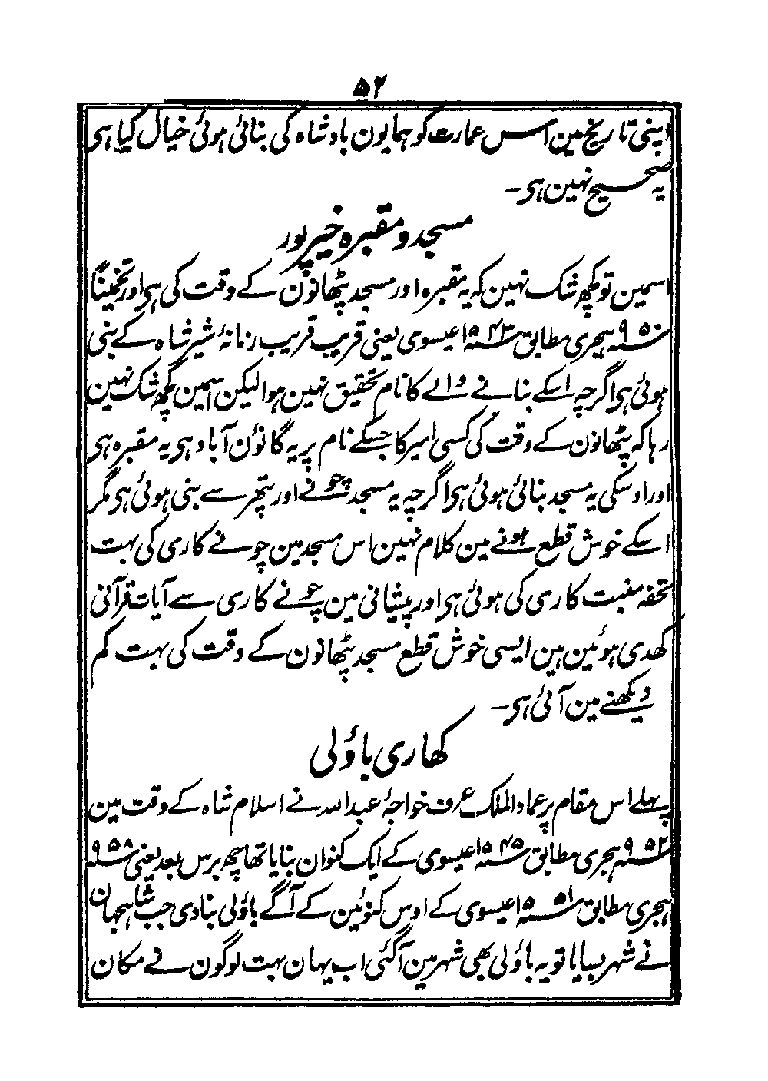 ۵۲
اپنی تاریخ مین اس عمارت کو ہمایون بادشاہ کی بنائی ہوئی خیال کیا ہی
یہ صحیح نہین ہی۔
مسجد و مقبرہ خیرپور
اسمین تو کچھ شک نہین کہ یہ مقبرہ اور مسجد پٹھانون کے وقت کی ہی اور تخمیناً
سنہ ۹۵۰ ہجری مطابق سنہ ۱۵۴۳ عیسوی یعنی قریب قریب زمانۂ شیر شاہ کے بنی
ہوئی ہی اگرچہ اسکے بنانے والے کا نام تحقیق نہین ہوا لیکن اسمین کچھ شک نہین
رہا کہ پٹھانون کے وقت کی کسی امیر کا جسکے نام پر یہ گانؤن آباد ہی یہ مقبرہ ہی
اور اوسکی یہ مسجد بنائی ہوئی ہی اگرچہ یہ مسجد چونے اور پتھر سے بنی ہوئی ہی مگر
اسکے خوش قطع ہونے مین کلام نہین اس مسجد مین چونے کاری کی بہت
تحفہ منبت کاری کی ہوئی ہی اور پیشانی مین چونے کاری سے آیات قرآنی
کھدی ہوئین ہین ایسی خوش قطع مسجد پٹھانون کے وقت کی بہت کم
دیکھنے مین آئی ہی۔
کھاری باؤلی
پہلے اس مقام پر عماد الملک عرف خواجۂ عبداللہ نے اسلام شاہ کے وقت مین
سنہ ۹۵۲ ہجری مطابق سنہ ۱۵۴۵ عیسوی کے ایک کنوان بنایا تھا چھ برس بعد یعنی سنہ ۹۵۸
ہجری مطابق سنہ ۱۵۵۱ عیسوی کے اوس کنوئین کے آگے باؤلی بنادی جب شاہجہان
نے شہر بسایا تو یہ باؤلی بھی شہر مین آگئی اب یہان بہت لوگون نے مکان